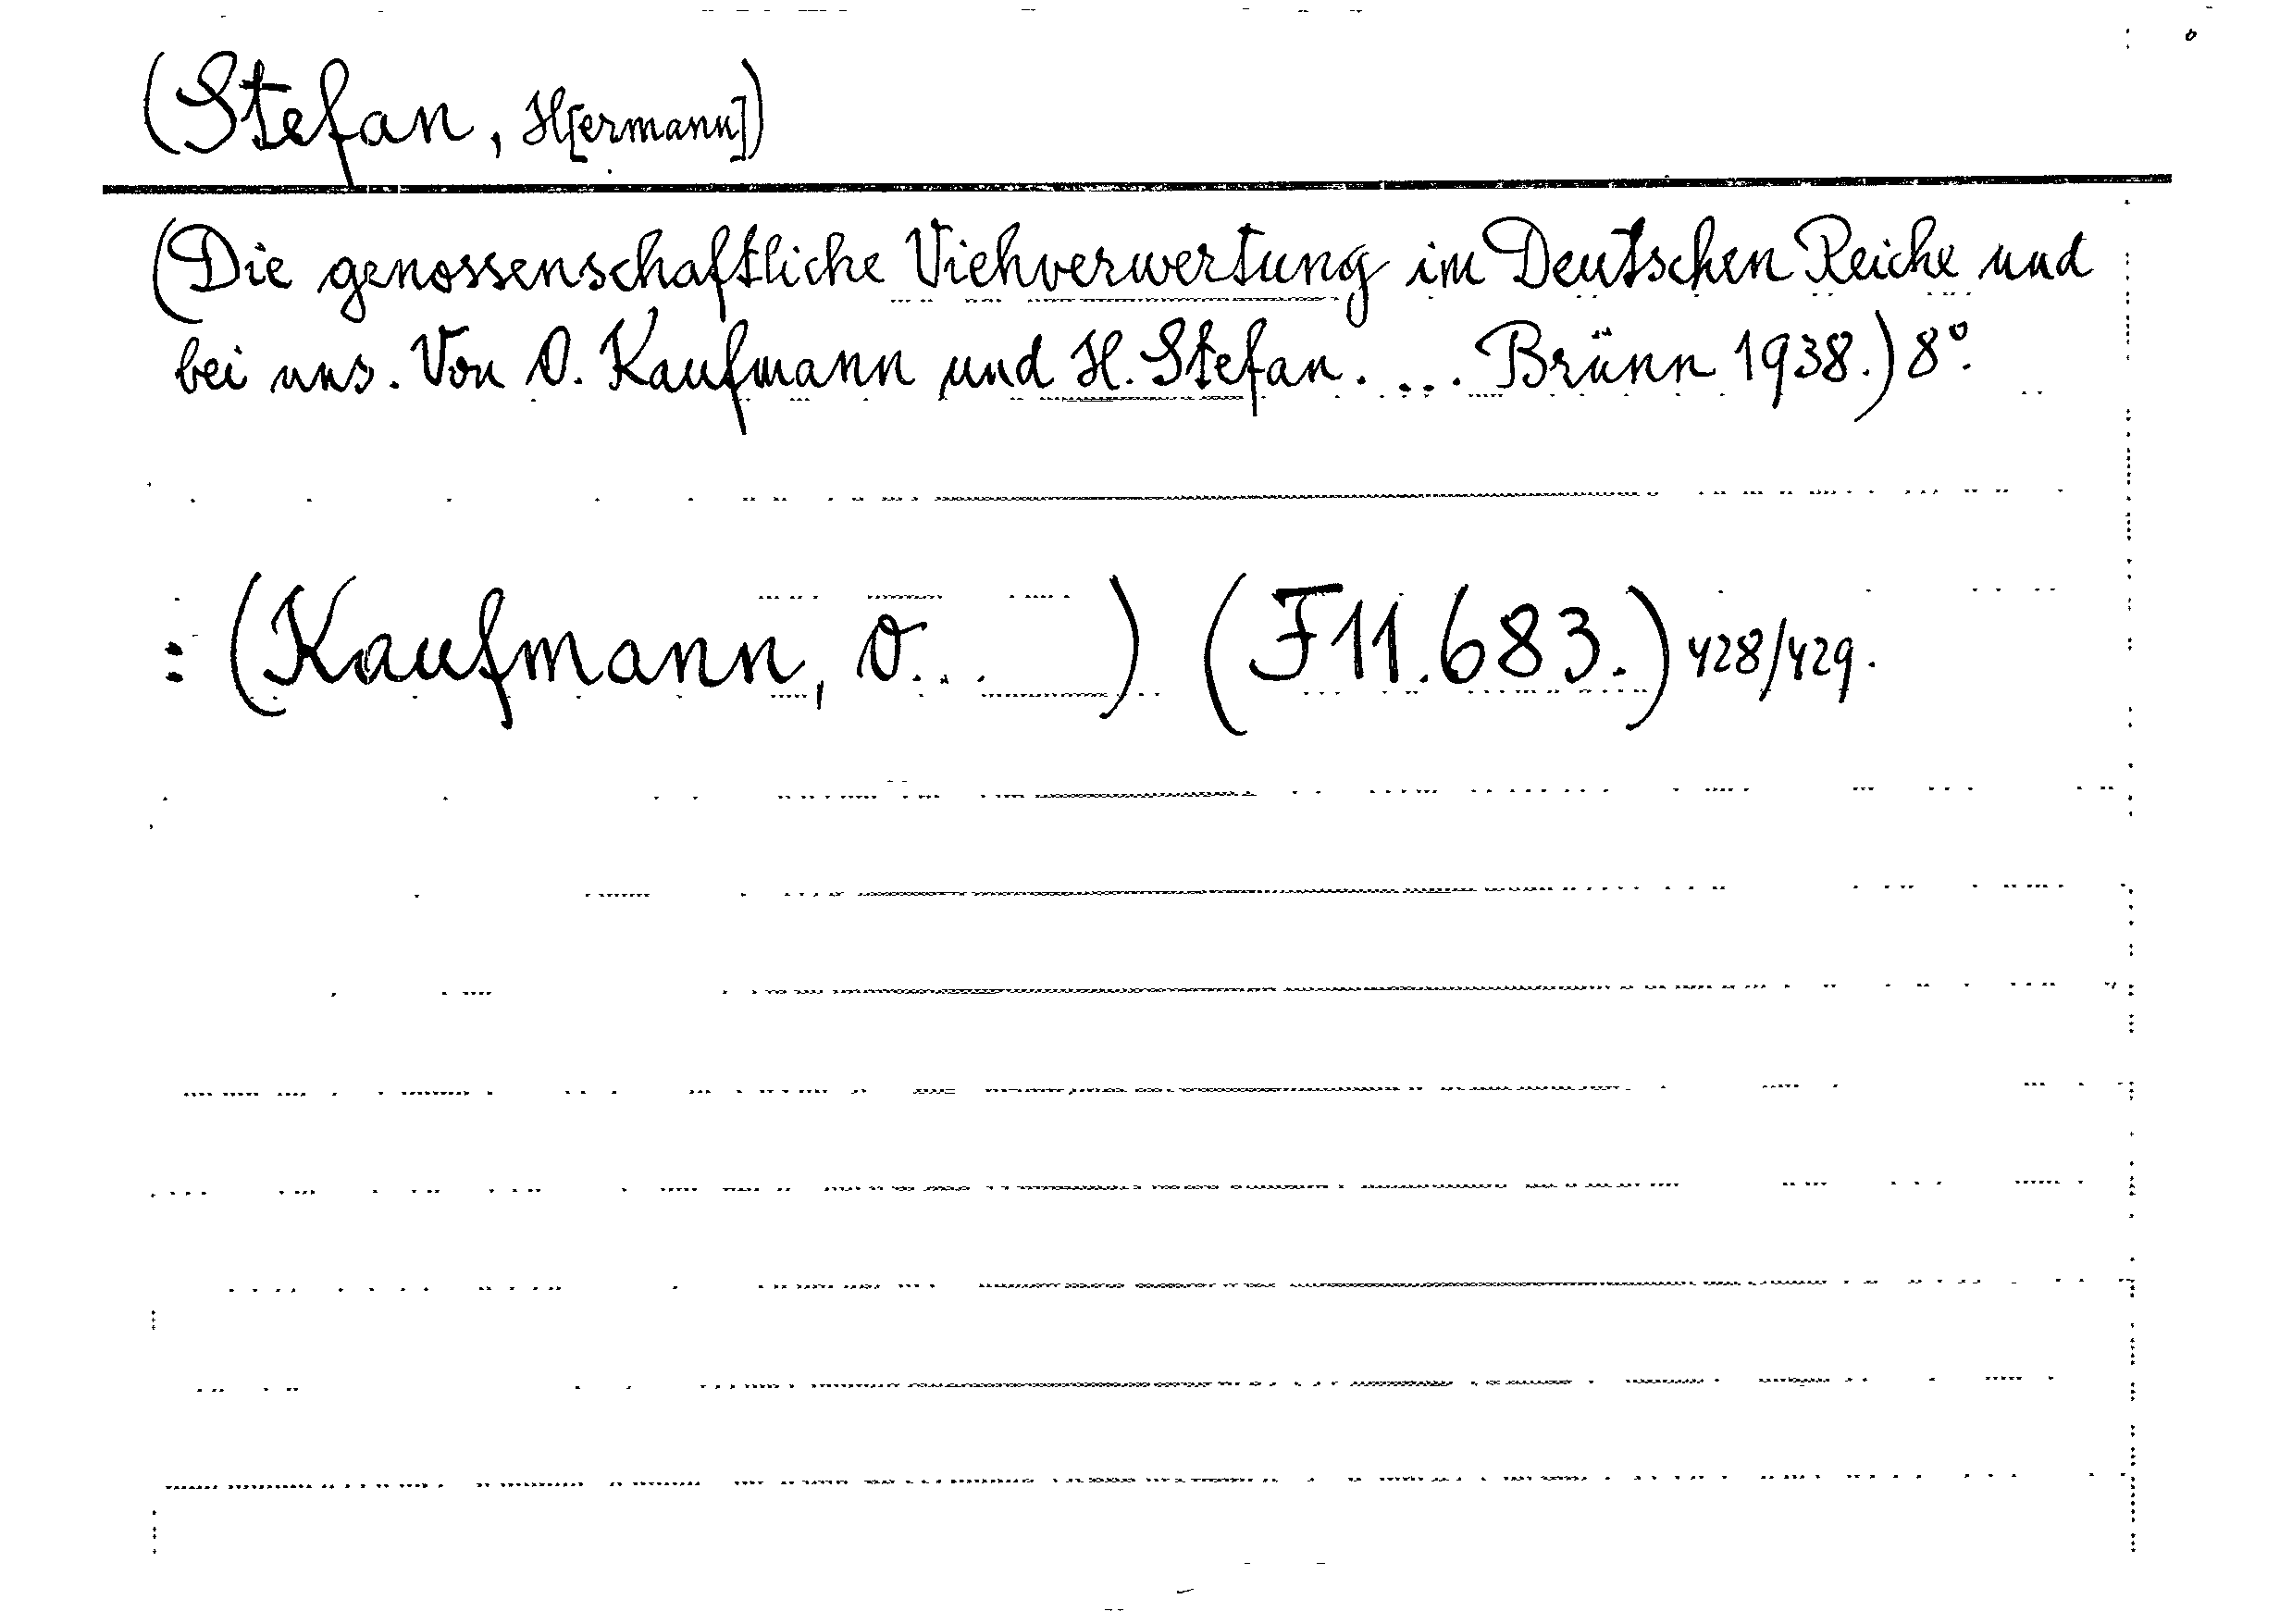 (Stefan, H[ermann])
(Die genossenschaftliche Viehverwertung im Deutschen Reiche und
bei uns. Von O. Kaufmann und H. Stefan. ... Brünn 1938.) 8°.
: (Kaufmann, O... ) (F 11.683.) 428/429.